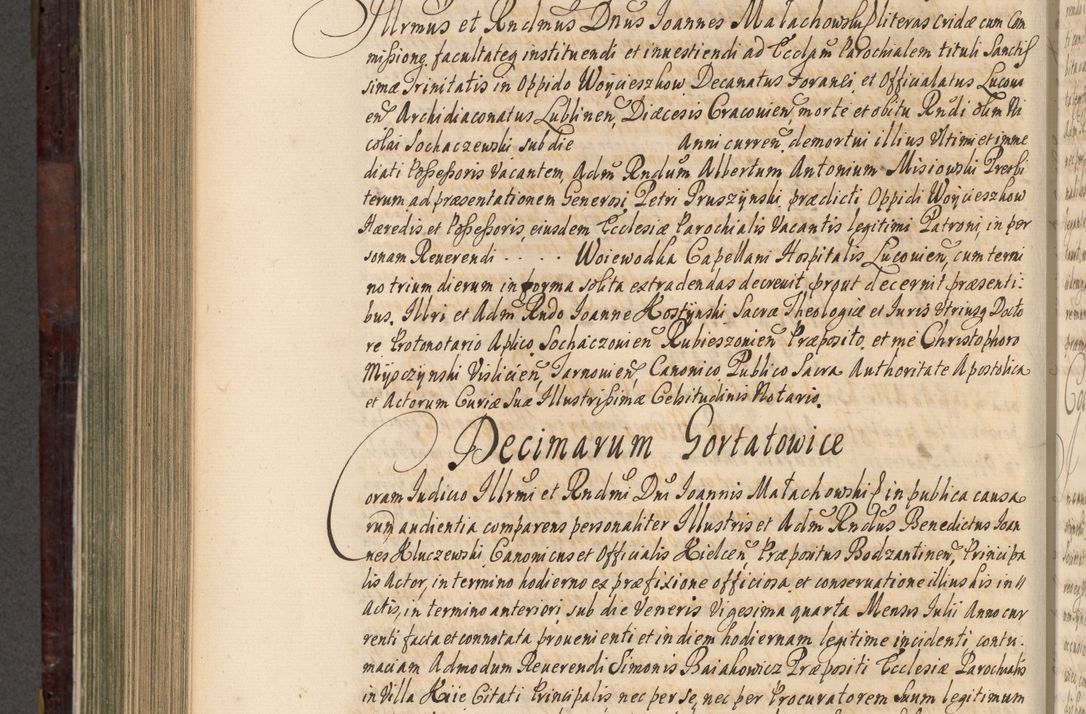 Illrmus et Rndmus Dnus Joannes Małachowski literas cridæ cum Com
missione, facultateq instituendi et inuestiendi ad Ecclam Parochialem tituli Sanctis
simæ Trinitatis in Oppido Woycieszkow Decanatus Foranei, et Officialatus Lucoui
en Archidiaconatus Lublinen, Diæcesis Cracouien, morte et obitu Rndi olim Ni
colai Sochaczewski sub die anni curren, demortui illius Ultimi et imme
diati Possessoris Vacantem, Adm Rndum Albertum Antonium Misiowski Præsbi
terum ad præsentationem Generosi Petri Pruszynski, prædicti Oppidi Woycieszkow
Hæredis et Possessoris, eiusdem Ecclesiæ Parochialis Vacantis legitimi Patroni, in per
sonam Reuerendi . . . . . Woiewodka Capellani Hospitalis Lucouien, cum terni
no trium dierum in forma solita extradendas decreuit, prout decernit præsenti:
bus. Illri et Adm Rndo Joanne Kostynski Sacræ Theologiæ et Iuris Utriusq Docto
re Protonotario Aplico, Sochaczouien Rubieszouien Præposito, et me Christophoro
Mysczynski Vislicien, Tarnouien, Canonico Publico Sacra Authoritate Apostolica
et Actorum Curiæ Suæ Illustrissimæ Celsitudinis Notario.
Decimarum Gortatowice
Coram Iudicio Illrmi et Rndmi Dni Joannis Małachowski in publica causa
rum audientia comparens personaliter Illustris et Adm Rndus Benedictus Joan
nes Kluczewski Canonicus et Officialis Kielcen, Præpositus Bodzantinen, Principa
lis Actor, in termino hodierno ex præfixione officiosa et conseruatione illius his in
Actis, in termino anteriori, sub die Veneris Vigesima quarta Mensis Iulii Anno cur
renti facta et connotata prouenienti et in diem hodiernam legitime incidenti contu:
maciam Admodum Reuerendi Simonis Baiakowicz Præpositi Ecclesiæ Parochialis
in Villa Kiie Citati Principalis, nec per se, nec per Procuratorem suum legitimum